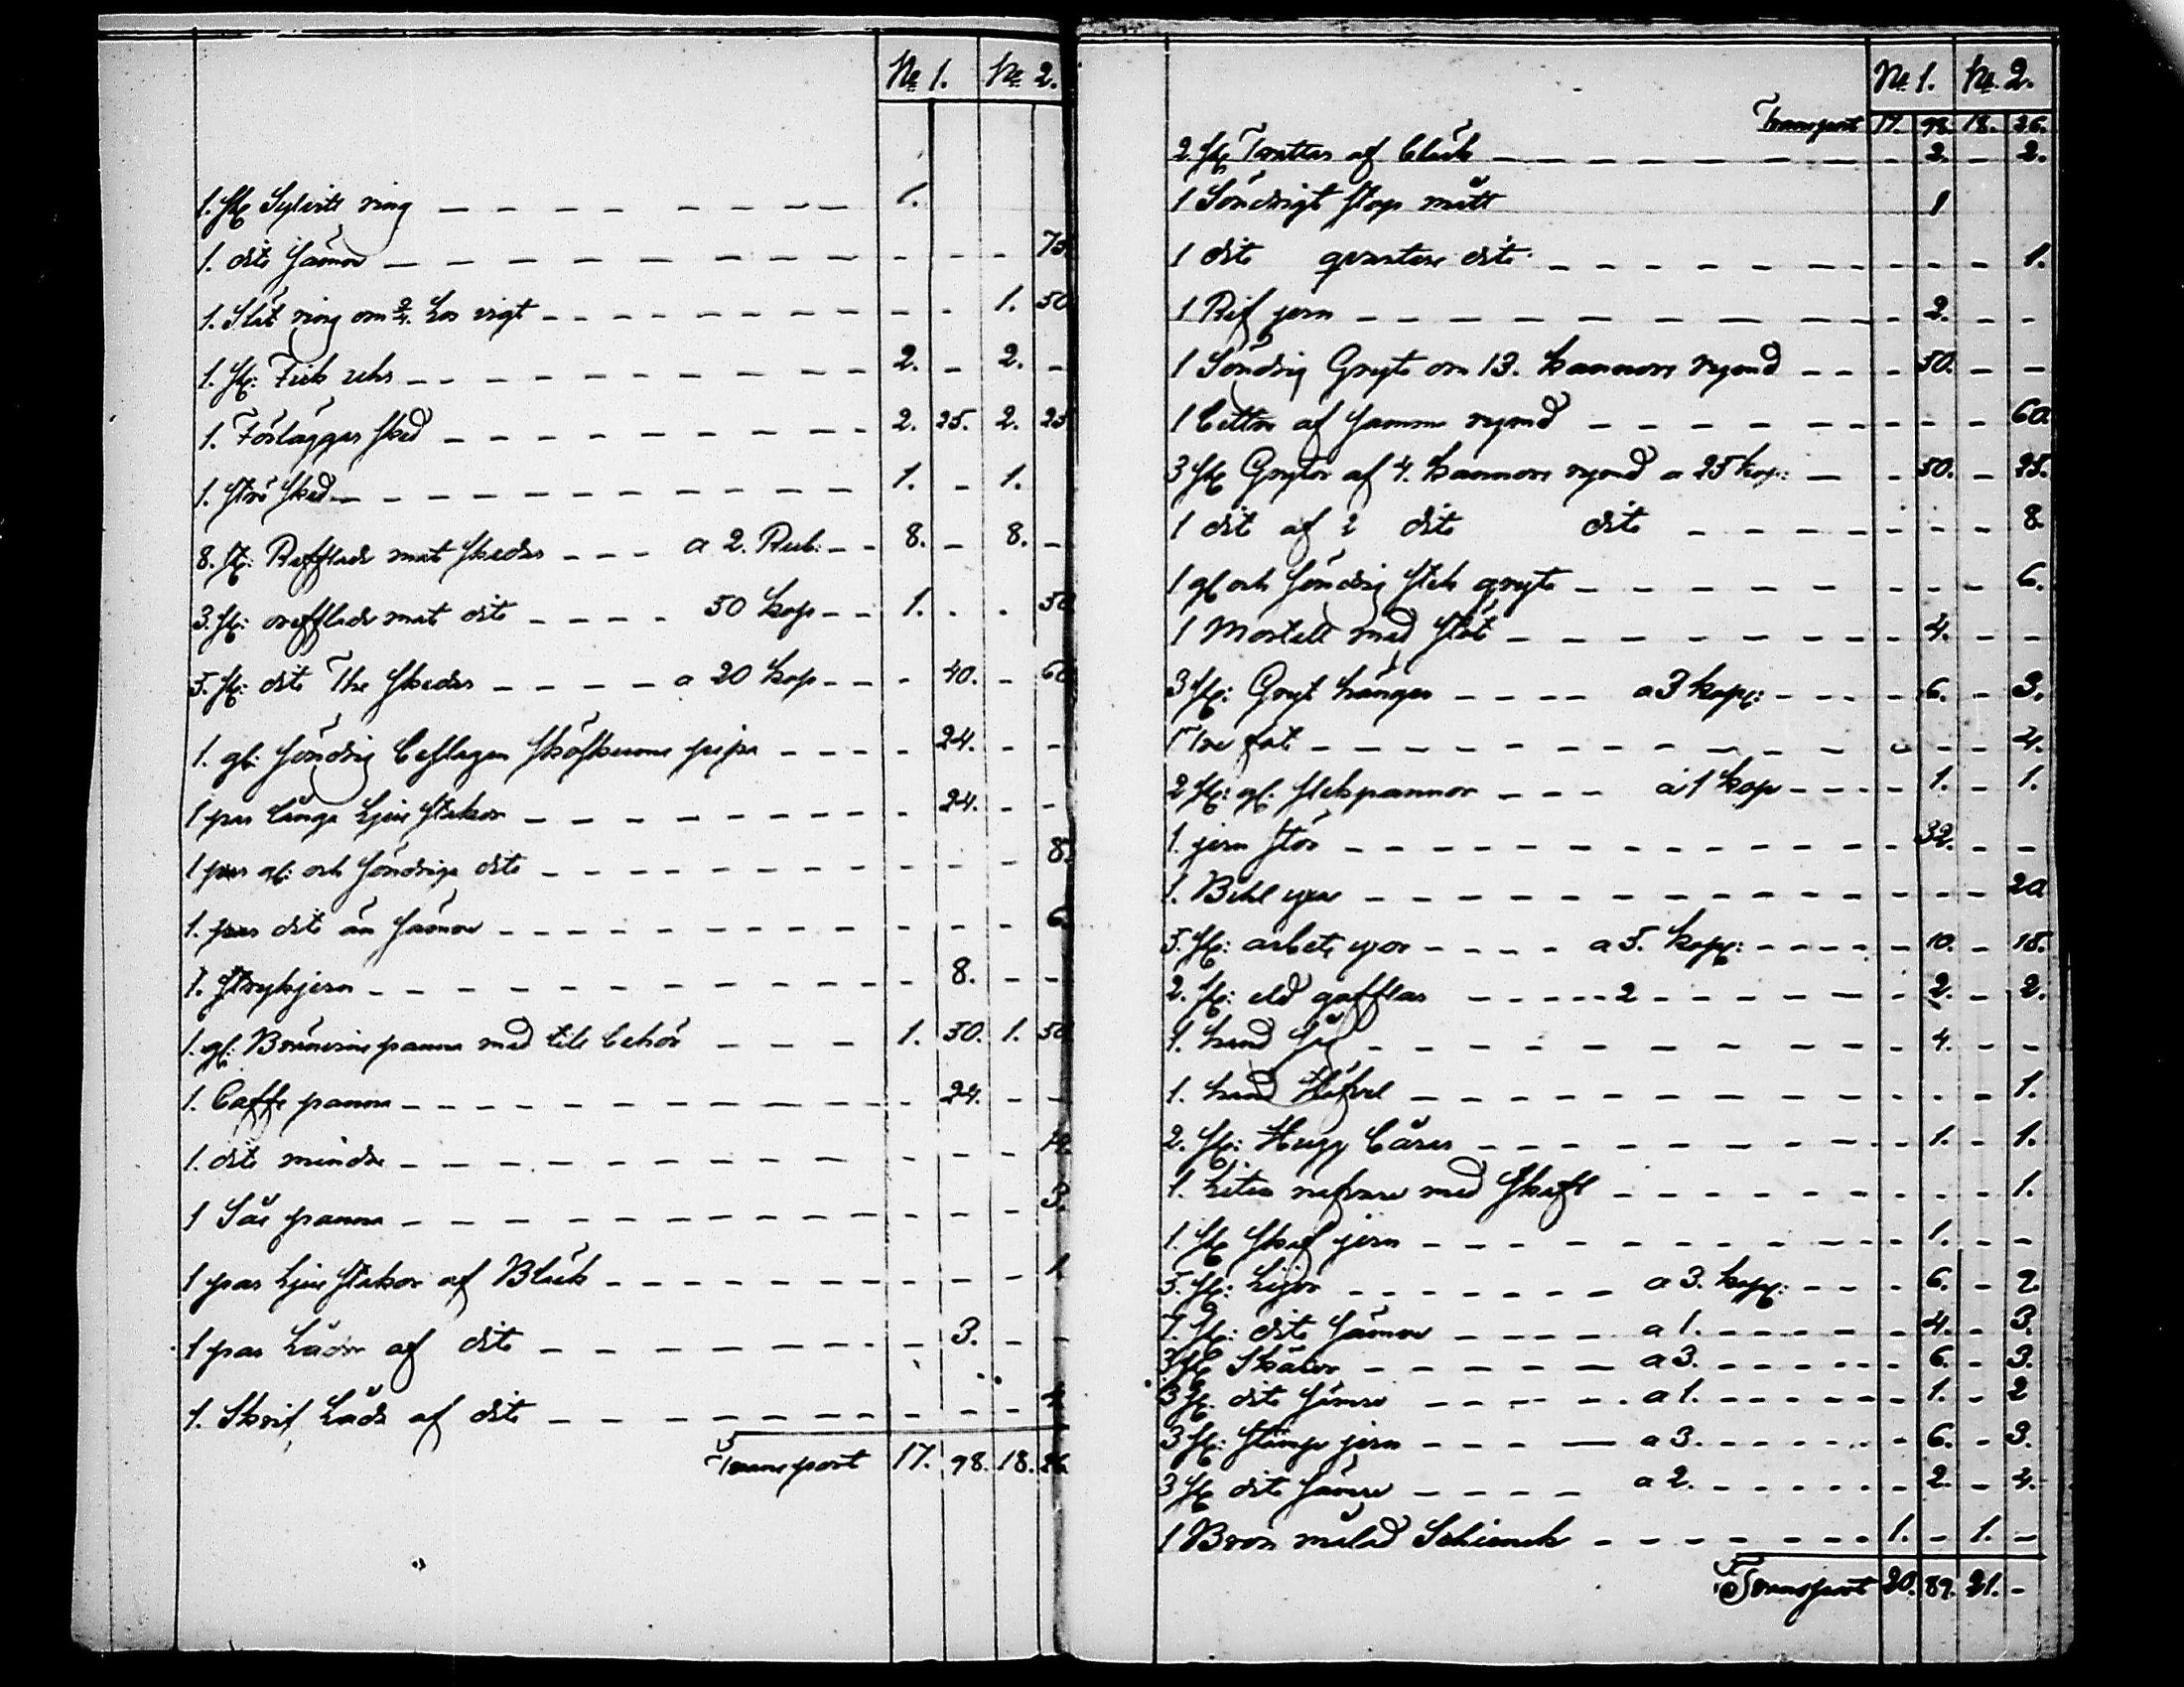 No 1. No 2.
1. st Sylvits ring — 1.
1. dito sämre — 75.
1. Slät ring om 3/4 Lod vigt — 1. 50
1. st: Fick uhr — 2. - 2. -
1. Förläggar sked — 2. 25. 2. 25
1. strö sked — 1. - 1.
8. st: Refflade mat skedar — a 2. Rub: — 8. - 8. -
3. st: orefflade mat dito — 50 kop — 1. - - 50
5. st: dito The skedar — a 20 kop — 40. - 60
1. gl: söndrig beslagen sköskums pipa — 24. - -
1 par långa Ljus stakar — 24. - -
1 par gl: och söndriga dito — 8.
1. par dito än sämre — 6.
1. Strykjern — 8. - -
1. gl: Brännvins panna med till behör — 1. 50. 1. 50
1. Caffe panna — 24. - -
1. dito mindre — 12.
1 Sås panna — 3.
1 par Ljus stakar af Bläck — 1
1 par Lådor af dito — 3. - -
1. Skrif Låda af dito —
Transport 17. 98. 18. 26.
No 1. No 2.
Transport 17. 98. 18. 26.
2. st Trattar af bläck — 2. - 2.
1 Söndrigt stop mått 1
1 dito qvarters dito — 1.
1 Rif jern — 2. - -
1 Söndrig Gryta om 13. kannors rymd — 50. - -
1 bättre af samma rymd — 60.
3 st Grytor af 4. kannors rymd a 25 kop: — 50. - 25.
1 dit af 2 dito dito — 8.
1 gl och söndrig stek gryta — 6.
1 Mortell med stöt — 4. - -
3 st: Gryt hänger — a 3 kop: — 6. - 3.
1 Tre fot — 4.
2 st: gl: stekpannor — a 1 kop — 1. - 1.
1. jern stör — 32. - -
1. Bihl yxe — 20
5. st: arbets yxor — a 5. kop: — 10. - 15.
2. st: eld gafflar — 2 — 2. - 2.
1. hand såg — 4. - -
1. hand Höfvel — 1.
2. st: Hugg Bårar — 1. - 1.
1. Liten nafvare med skaft — 1.
1. st skaf jern — 1. - -
5. st: Lijor — a 3. kop: — 6. - 2.
7. st: dito sämre — a 1. — 4. - 3.
3 st Skäror — a 3. — 6. - 3.
3 st. dito sämre — a 1. — 1. - 2
3 st: stämp jern — a 3. — 6. - 3.
3 st dito sämre — a 2. — 2. - 4.
1 Brun målad Schienck — 1. - 1. -
Transport 20. 89. 21. -